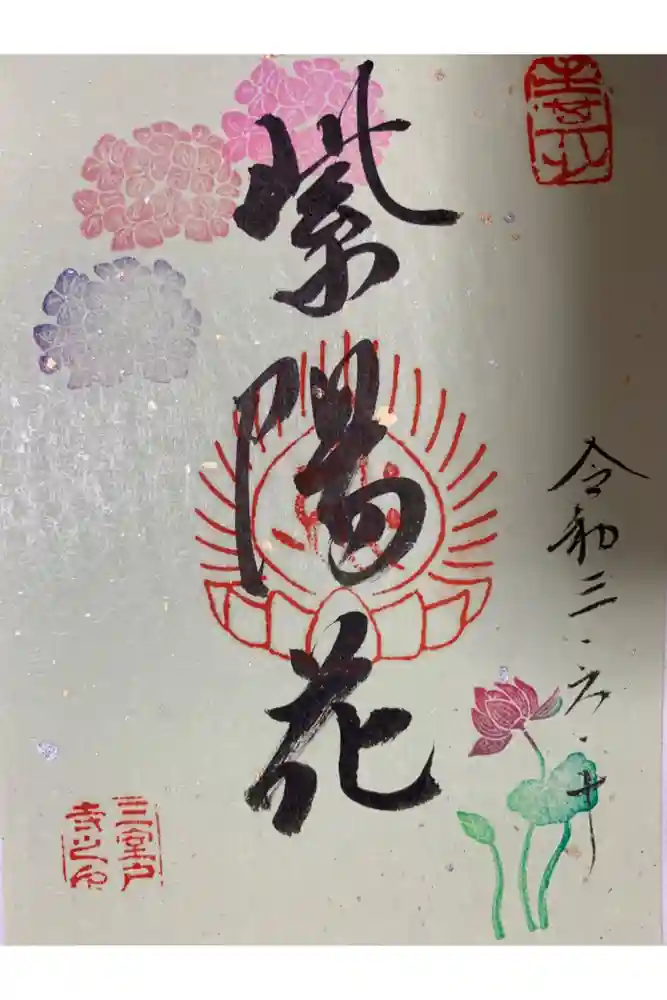 令和三・六・十
紫陽花
三室戸
寺之印